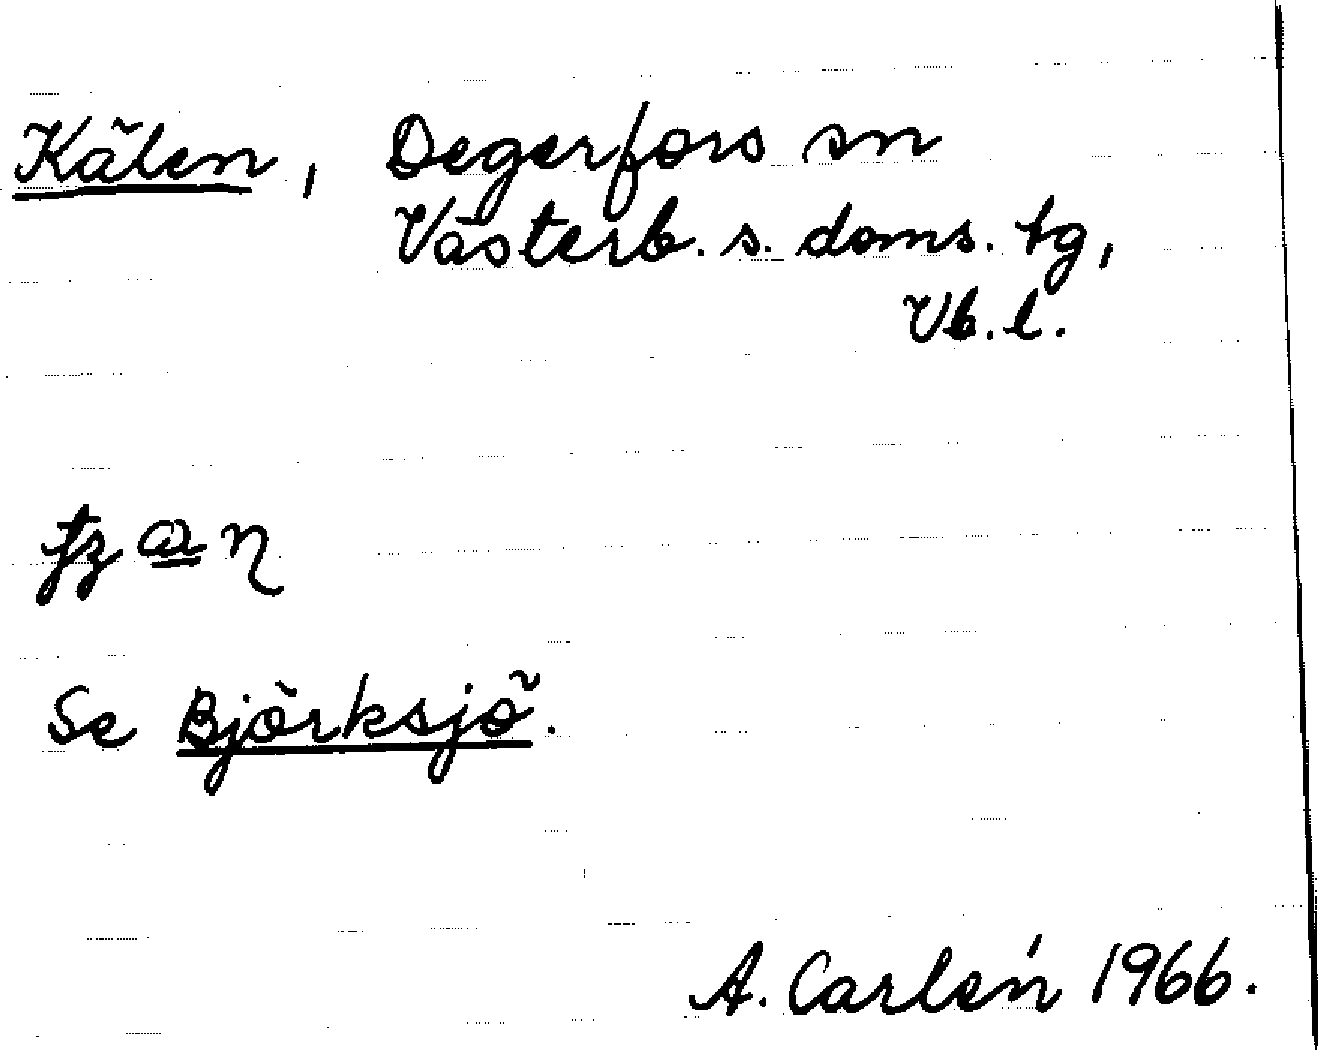 Kälen, Degerfors sn
Västerb. s. doms. tg,
Vb. l.
Se Björksjö.
A. Carlén 1966.